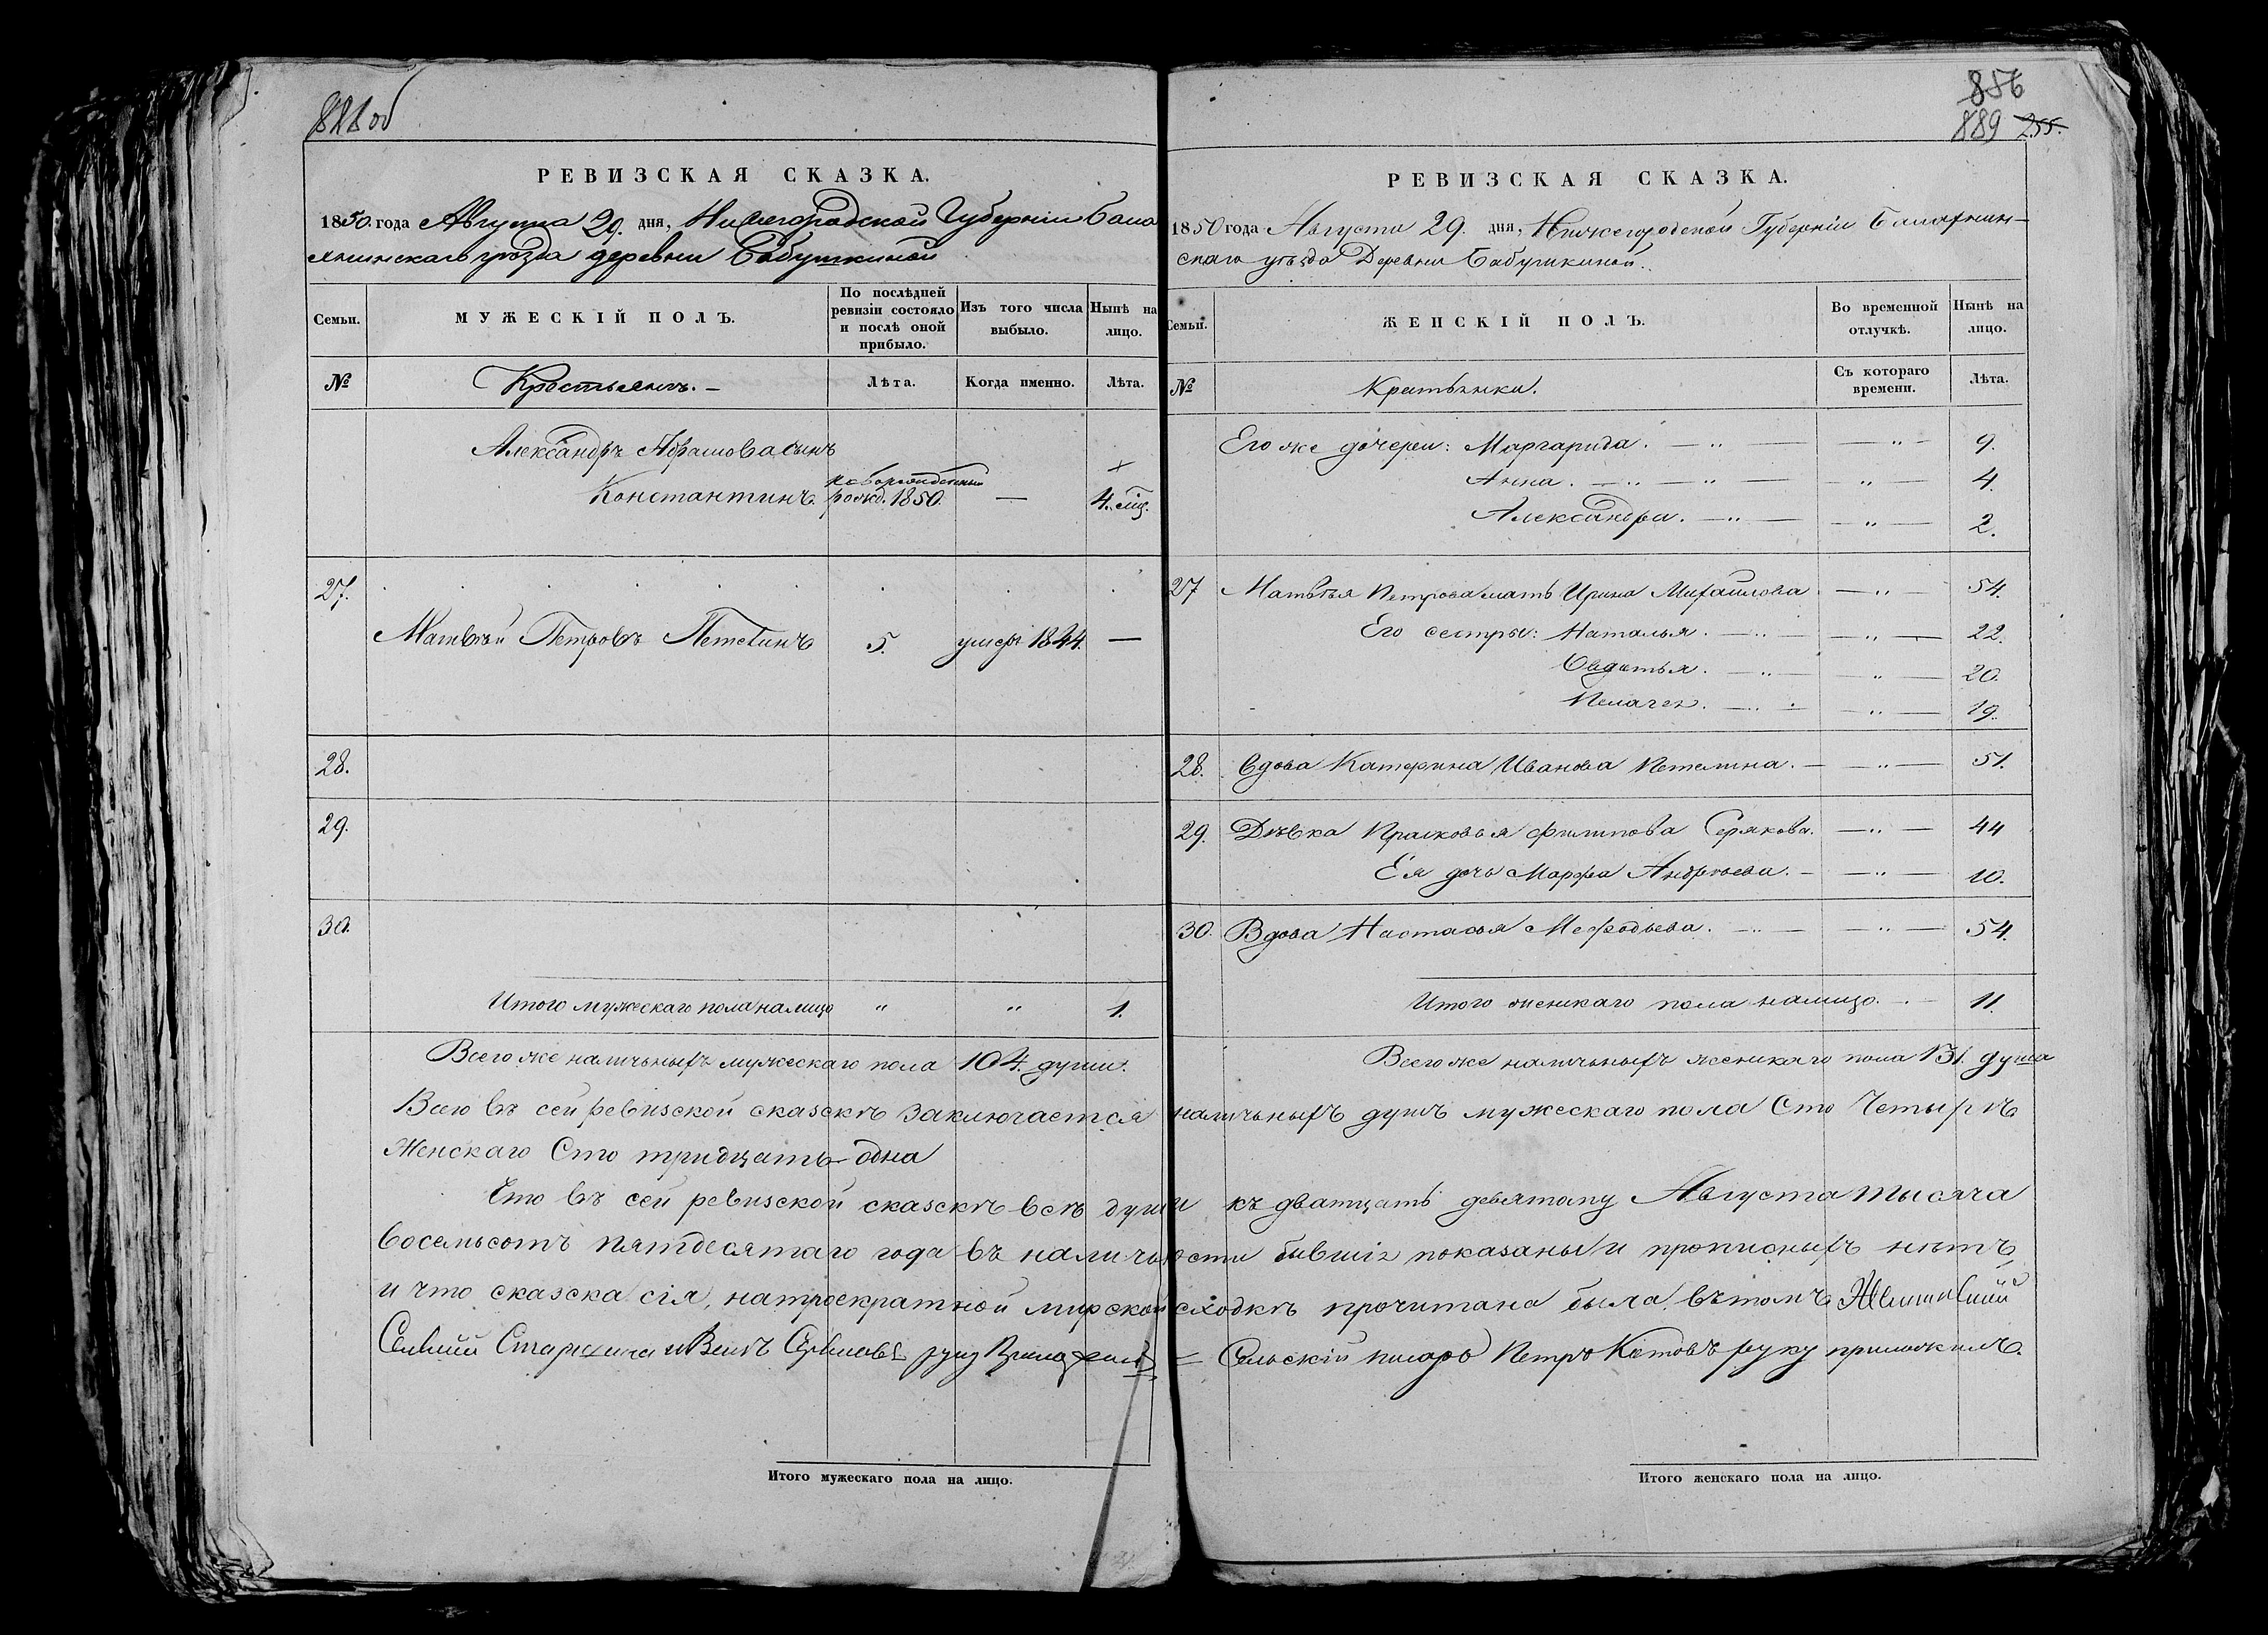 856
889 255.
РЕВИЗСКАЯ СКАЗКА.
1850 года Августа 29. дня, Нижегородской Губерніи Бала
хнинскаго уѣзда деревни Бабушкиной
Семьи. МУЖЕСКІЙ ПОЛЪ. По послѣдней ревизіи состояло и послѣ оной прибыло. Изъ того числа выбыло. Нынѣ на лицо.
№ Крестьянъ. Лѣта. Когда именно. Лѣта.
Александръ Абрамова сынъ
новорожденный
Константинъ рожд. 1850. — 4. мѣс.
27.
Матвѣй Петровъ Петелинъ 5. умеръ 1844. —
28.
29.
30.
Итого мужескаго пола налицо " " 1.
Всего же наличныхъ мужескаго пола 104. души.
РЕВИЗСКАЯ СКАЗКА.
1850 года Августа 29. дня, Нижегородской Губерніи Балахнин-
скаго уѣзда Деревни Бабушкиной.
Семьи. ЖЕНСКІЙ ПОЛЪ. Во временной отлучкѣ. Нынѣ на лицо.
№ Крестьянки. Съ котораго времени. Лѣта.
Его же дочери: Маргарида. — " — — " — 9.
Анна. — " — " — — " — 4.
Александра. — " — — " — 2.
27 Матвѣя Петрова мать Ирина Михайлова — " — 54.
Его сестры: Наталья. — " — " — 22.
Овдотья. — " — — " — 20.
Пелагея. — " — — " — 19.
28. Вдова Катерина Иванова Петелина. — — " — 51.
29. Дѣвка Прасковья Филипова Серякова. — " — 44
Ея дочь Марфа Андрѣева. — — " — 10.
30. Вдова Настасья Мефодьева. — " — — " — 54.
Итого женскаго пола налицо. — 11.
Всего же наличныхъ женскаго пола 131. душа
Всего въ сей ревизской сказскѣ заключается наличныхъ душъ мужескаго пола Сто Четырѣ
Женскаго Сто тридцать одна
Что въ сей ревизской сказскѣ всѣ души къ дватцать девятому Августа тысяча
восемьсотъ пятдесятаго года въ наличности бывшіе показаны и прописныхъ нѣтъ,
и что сказска сія, на троекратной мирской сходкѣ прочитана была. въ томъ
Старшина руку = Сельскій писарь Петръ Котовъ руку приложилъ.
Итого мужескаго пола на лицо.
Итого женскаго пола на лицо.